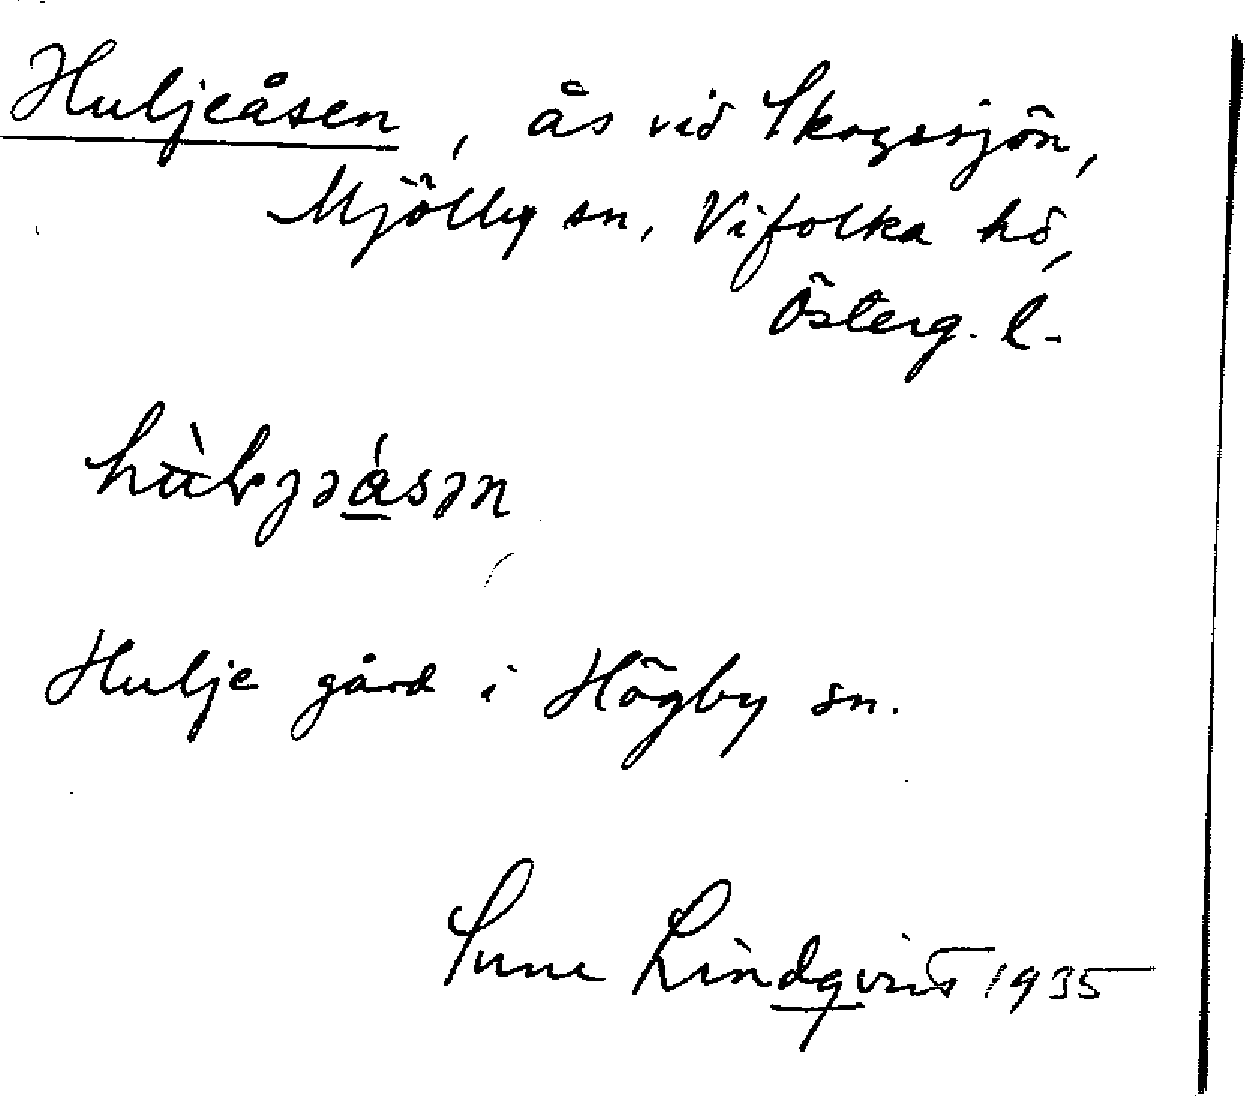 Huljeåsen, ås vid Skogssjön,
Mjölby sn, Vifolka hd,
Österg. l.
Hulje gård i Högby sn.
Sune Lindqvist 1935